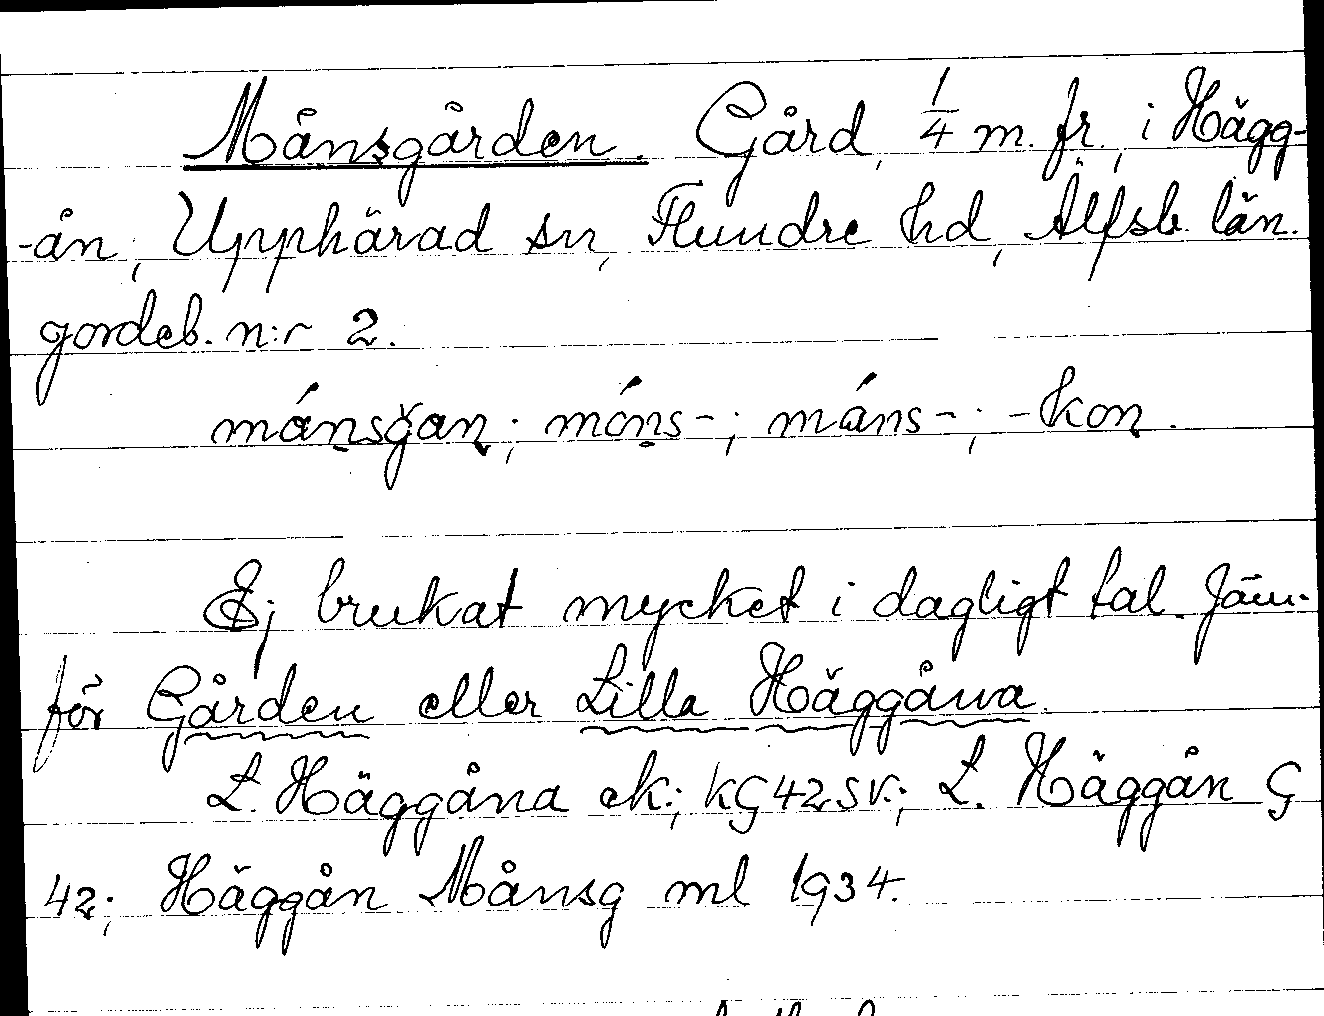 Månsgården. Gård, 1/4 m. fr., i Hägg-
-ån, Upphärad sn, Flundre hd, Älfsb. län.
Jordeb. n:r 2.
mánsgan; móns-; máns-; -kon.
Ej brukat mycket i dagligt tal. Jäm-
för Gården eller Lilla Häggåna.
L. Häggåna ek.; KG42SV.; L. Häggån G
42; Häggån Månsg ml 1934.